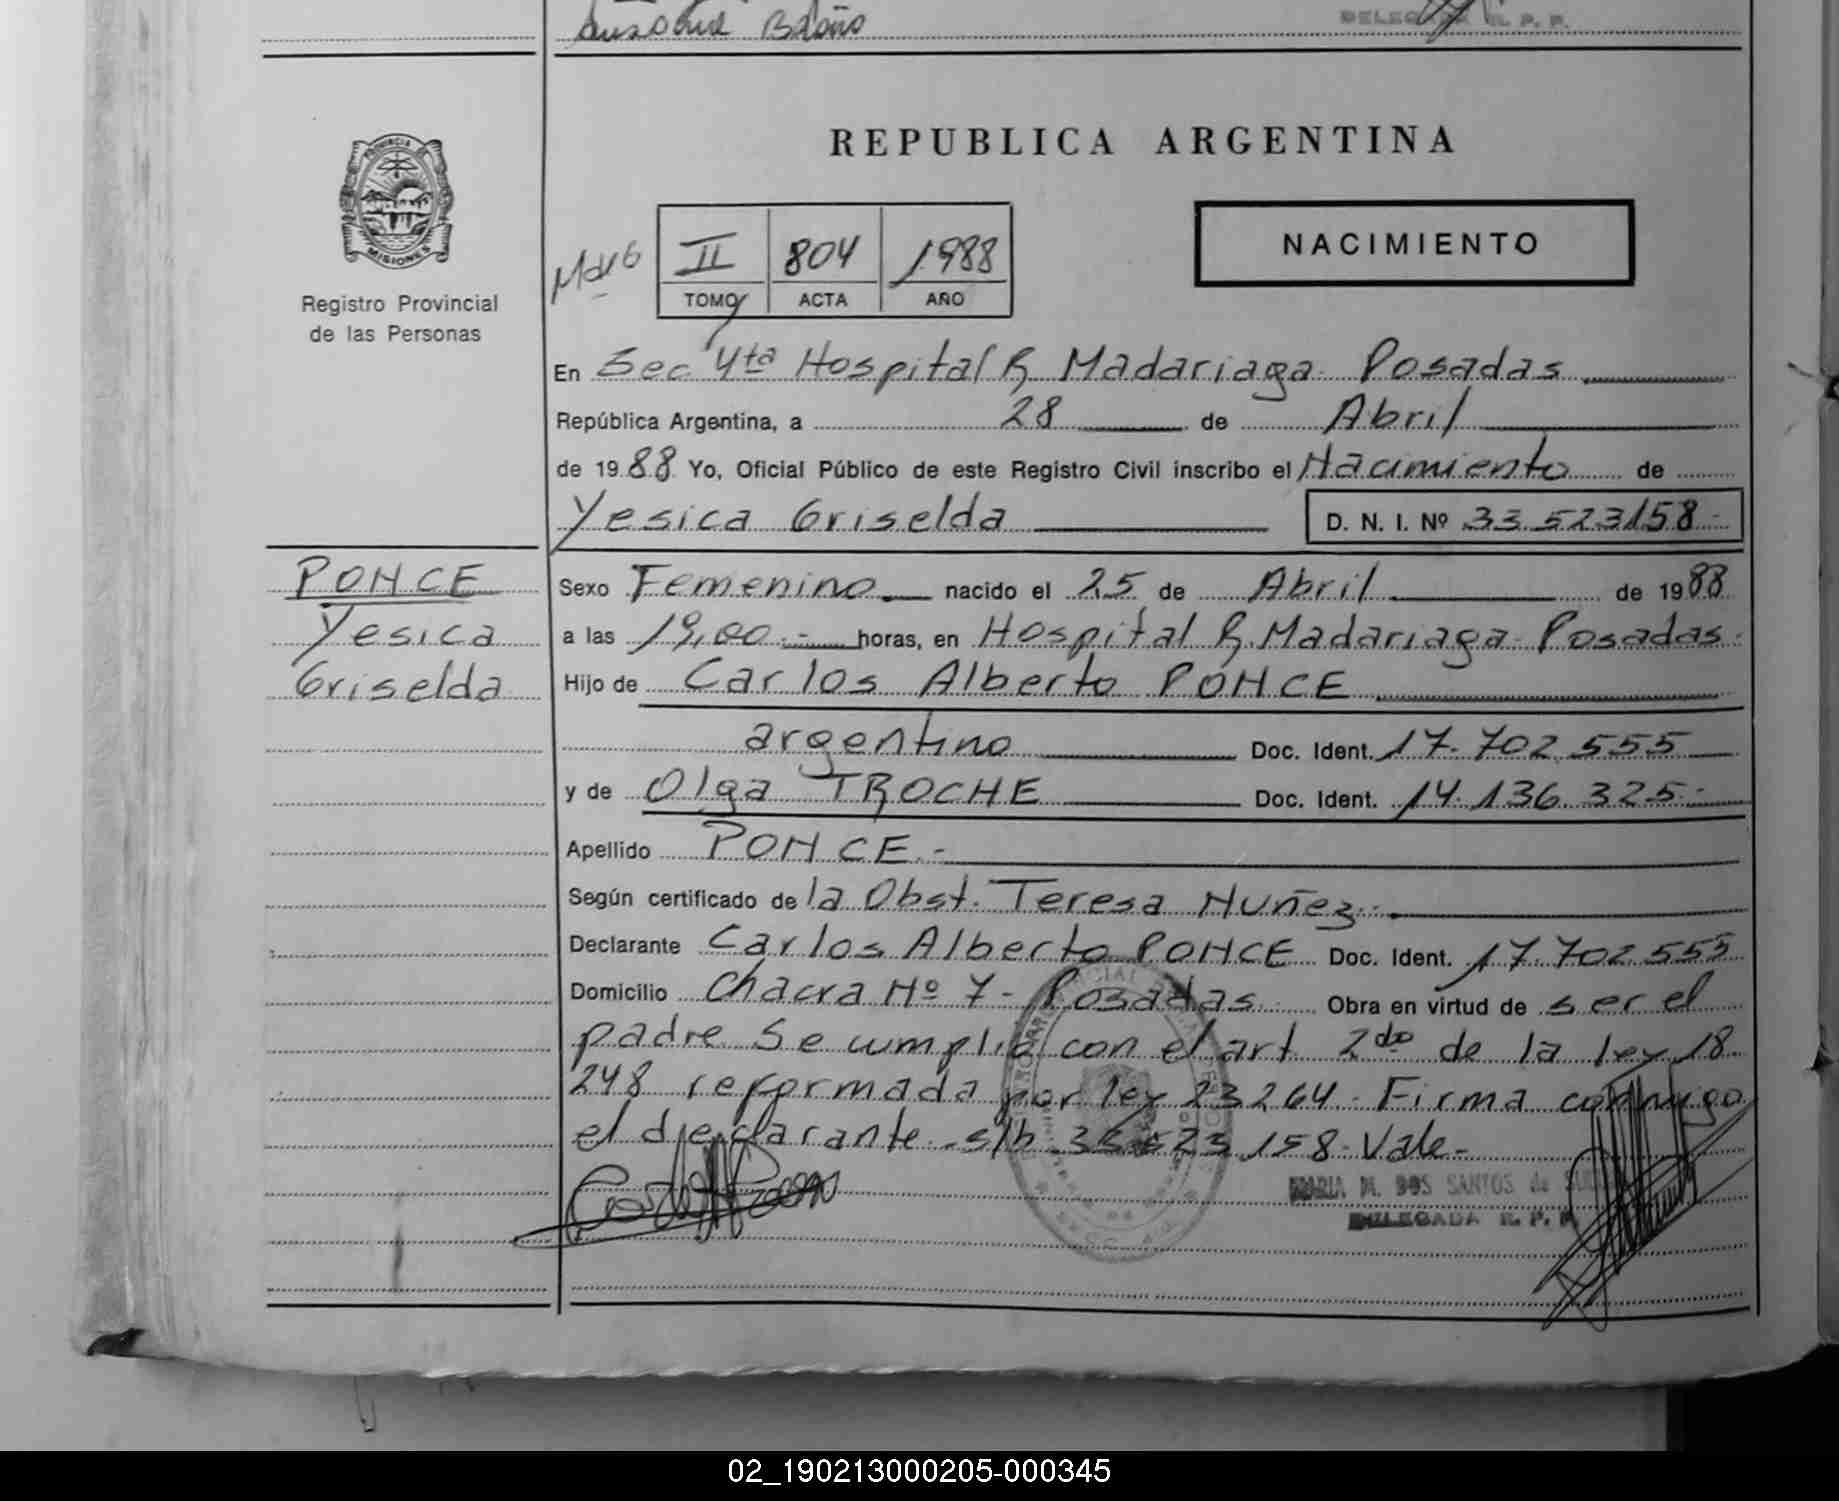 DELEGADA R. P. P.
REPUBLICA ARGENTINA
PROVINCIA DE
MISIONES
Registro Provincial
de las Personas
II 804 1988
TOMO ACTA AÑO
NACIMIENTO
En Sec 4ta Hospital R. Madariaga Posadas
República Argentina, a 28 de Abril
de 1988 Yo, Oficial Público de este Registro Civil inscribo el Nacimiento de
Yesica Griselda D. N. I. Nº 33.523158-
PONCE
Yesica
Griselda
Sexo Femenino nacido el 25 de Abril de 1988
a las 19,00.- horas, en Hospital R. Madariaga- Posadas.
Hijo de Carlos Alberto PONCE
argentino Doc. Ident. 17.702.555
y de Olga TROCHE Doc. Ident. 14.136.325.-
Apellido PONCE.-
Según certificado de la Obst. Teresa Nuñez.-
Declarante Carlos Alberto PONCE Doc. Ident. 17.702.555
Domicilio Chacra Nº 7- Posadas. Obra en virtud de ser el
padre Se cumplió con el art. 2do de la ley 18.
248 reformada por ley 23264. Firma conmigo
el declarante. s/b 33523.158- Vale-
MARIA M. DOS SANTOS de
DELEGADA R. P. P.
02_190213000205-000345